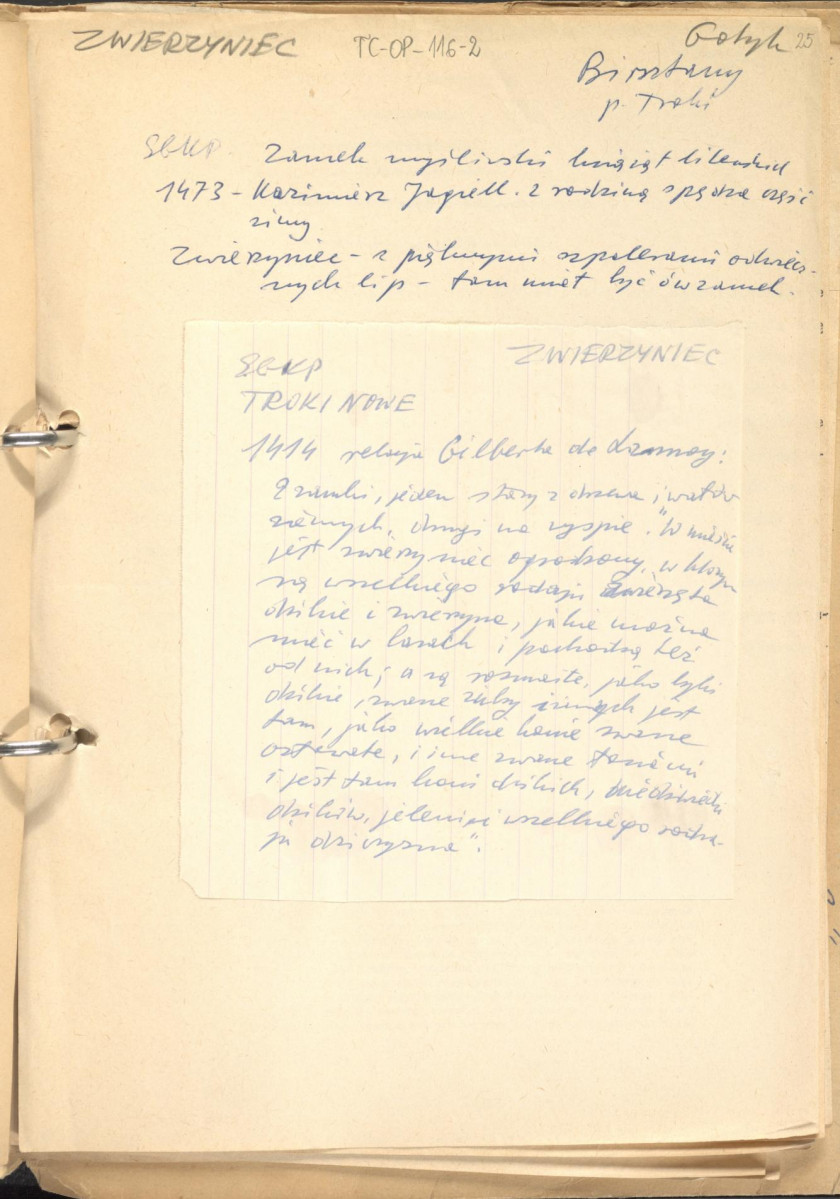 ZWIERZYNIEC TC-OP-116-2 Gotyk 25
Birsztany
p. Troki
SGKP. Zamek myśliwski książąt litewskich
1473 - Kazimierz Jagiell. z rodziną spędza część
zimy
Zwierzyniec - z pięknymi szpalerami odwiecz-
nych lip - tam miał być ów zamek.
SGKP ZWIERZYNIEC
TROKI NOWE
1414 relacja Gilberta de Lannoy:
2 zamki, jeden stary z drzewa i wałów
ziemnych, drugi na wyspie. "W mieście
jest zwierzyniec ogrodzony, w którym
są wszelkiego rodzaju zwierzęta
dzikie i zwierzyna, jakie można
mieć w lasach i pochodzą też
od nich; a są rozmaite, jako byki
dzikie, zwane zubry i innych jest
tam, jako wielkie konie zwane
, i inne zwane łosiami
i jest tam koni dzikich, niedźwiedzi
dzików, jeleni i wszelkiego rodza-
ju dziczyzna".